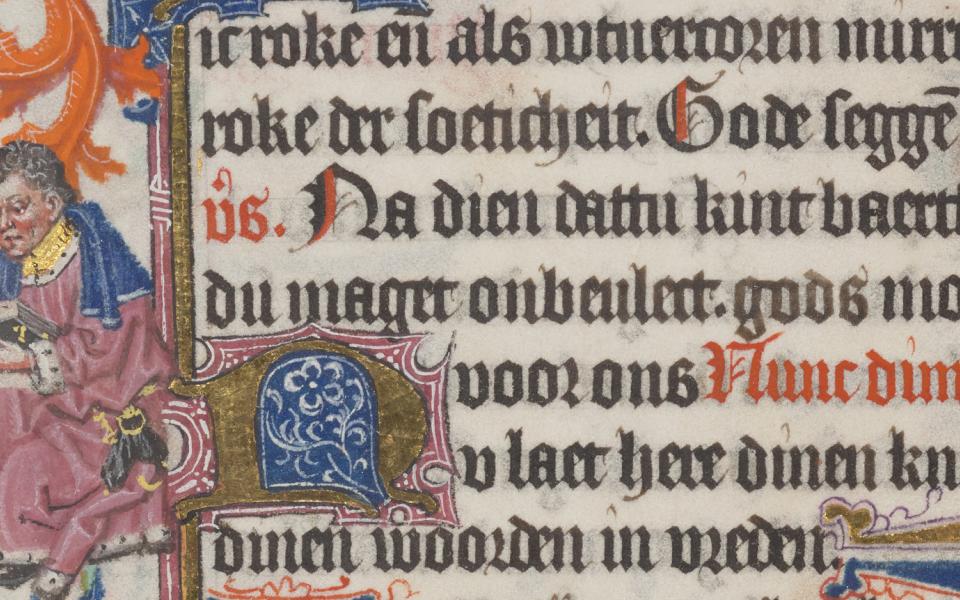 ic roke en̄ als wtuercoren mirr
roke der soeticheit. Gode seggē
v̄s. Na dien dattu kint baert
du maget onbeulect. gods mo
voor ons Nunc dim
Nv laet here dinen kn
dinen woorden in vreden.